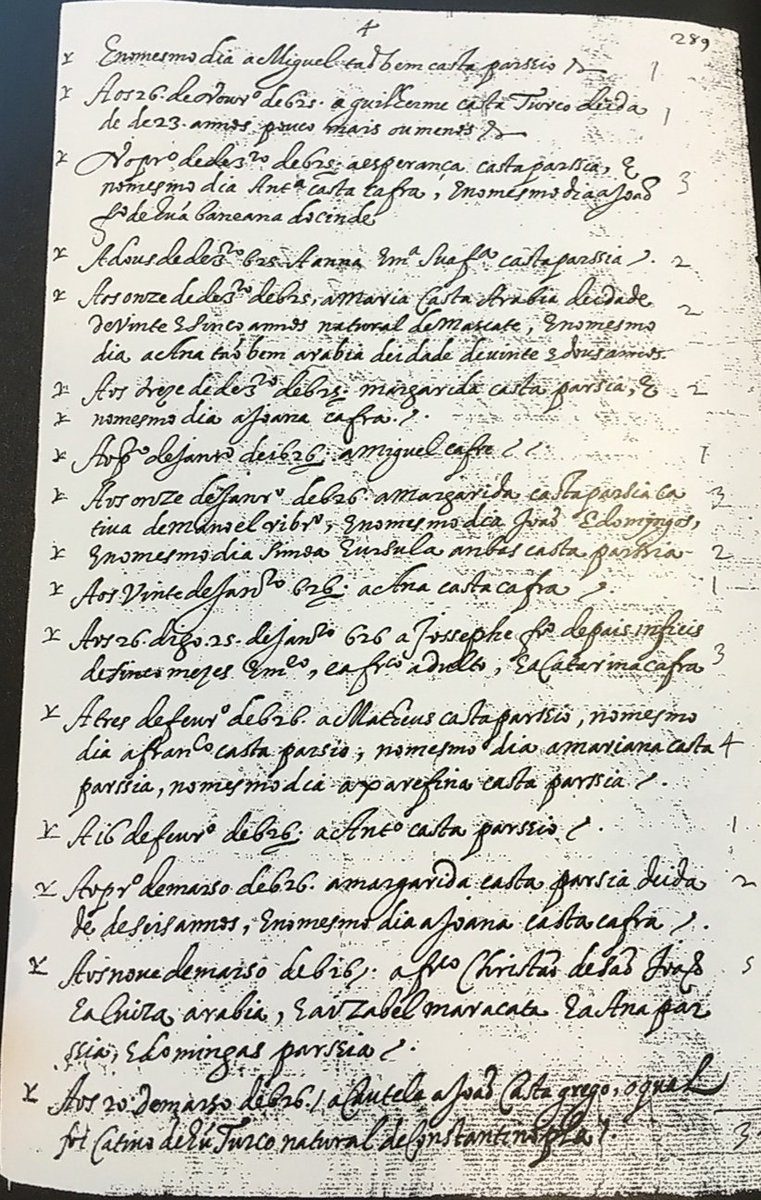 4
289
Enomesmo dia a Miguel taõ bem casta parssio 1
Aos 26. de Nouro. de 625. a guilherme casta Turco deida 1
de de 23. annos pouco mais ou menos
Nopro. de dezro de 625: aesperança casta parssia, E 3
nomesmo dia Anta casta cafra, Enomesmo dia a Joaõ
fo de huã baneana do cinde
A dous de dezro 625 Aanna Ema Sua fa casta parssia 2
Aos onze de dezro de 625, a Maria Casta Arabia deidade 2
de Vinte E Sinco annos natural de Mascate, Enomesmo
dia a Ana taõ bem arabia deidade de uinte E dous annos.
Aos treze de dezro de 625: margarida casta parsia, E 2
nomesmo dia a Joana cafra.
Aopro de Janro de 1626: a Miguel cafre 1
Aos onze de Janro. de 626. a Margarida casta parsia Ca 3
tiua de Manoel ribro, Enomesmo dia Joaõ E domingos,
Enomesmo dia Simoa E ursula anbas casta parssia 2
Aos Vinte de Janro 626: a Ana casta cafra 1
Aos 26. digo. 25. de Janro 626 a Jossephe fo de pais infieis
de sinco mezes Emo, ea frco adulto, Ea Catarina cafra 3
A tres de feuro de 626. a Matheus casta parssio, nomesmo
dia a franco casta parsio, nomesmo dia a mariana casta 4
parssia, nomesmo dia a xarefina casta parssia
A 16 de feuro. de 626: a Anto casta parssio 1
Aopro de marso de 626. a margarida casta parsia deida 2
de de seis annos, Enomesmo dia a Joana casta cafra
Aos noue de marso de 626: a frco Christaõ de Saõ Joaõ 5
Ea luiza arabia, Ea izabel maracata Ea Ana par
ssia, E domingas parssia
Aos 20. de marso de 626. a Cautela a Joaõ Casta grego, o qual
foi Catiuo de hũ Turco natural de Constantinopla. 3